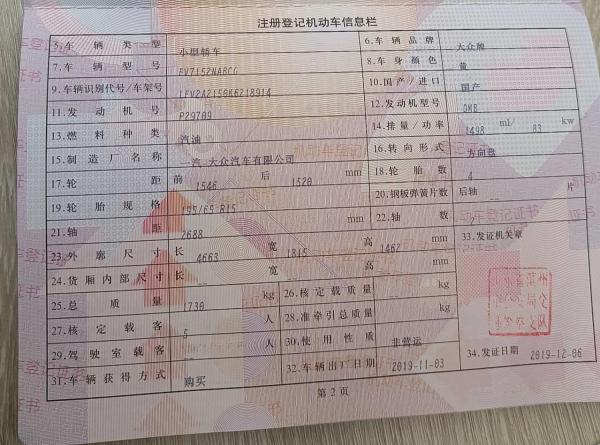 注册登记机动车信息栏
5.车辆类型 小型轿车 6.车辆品牌 大众牌
7.车辆型号 FV7152NABCG 8.车身颜色 黄
9.车辆识别代号/车架号 LFV2A2150K6218914 10.国产/进口 国产
11.发动机号 P29709 12.发动机型号 DMB
13.燃料种类 汽油 14.排量/功率 1498 ml/ 83 kw
15.制造厂名称 一汽-大众汽车有限公司 16.转向形式 方向盘
17.轮距 前 1546 后 1520 mm 18.轮胎数 4
19.轮胎规格 195/65 R15 20.钢板弹簧片数 后轴 -- 片
21.轴距 2688 mm 22.轴数 2
23.外廓尺寸 长 4663 宽 1815 高 1462 mm 33.发证机关章
24.货厢内部尺寸 长 -- 宽 -- 高 -- mm
25.总质量 1730 kg 26.核定载质量 -- kg
27.核定载客 5 人 28.准牵引总质量 -- kg
29.驾驶室载客 -- 人 30.使用性质 非营运
31.车辆获得方式 购买 32.车辆出厂日期 2019-11-03 34.发证日期 2019-12-06
第2页